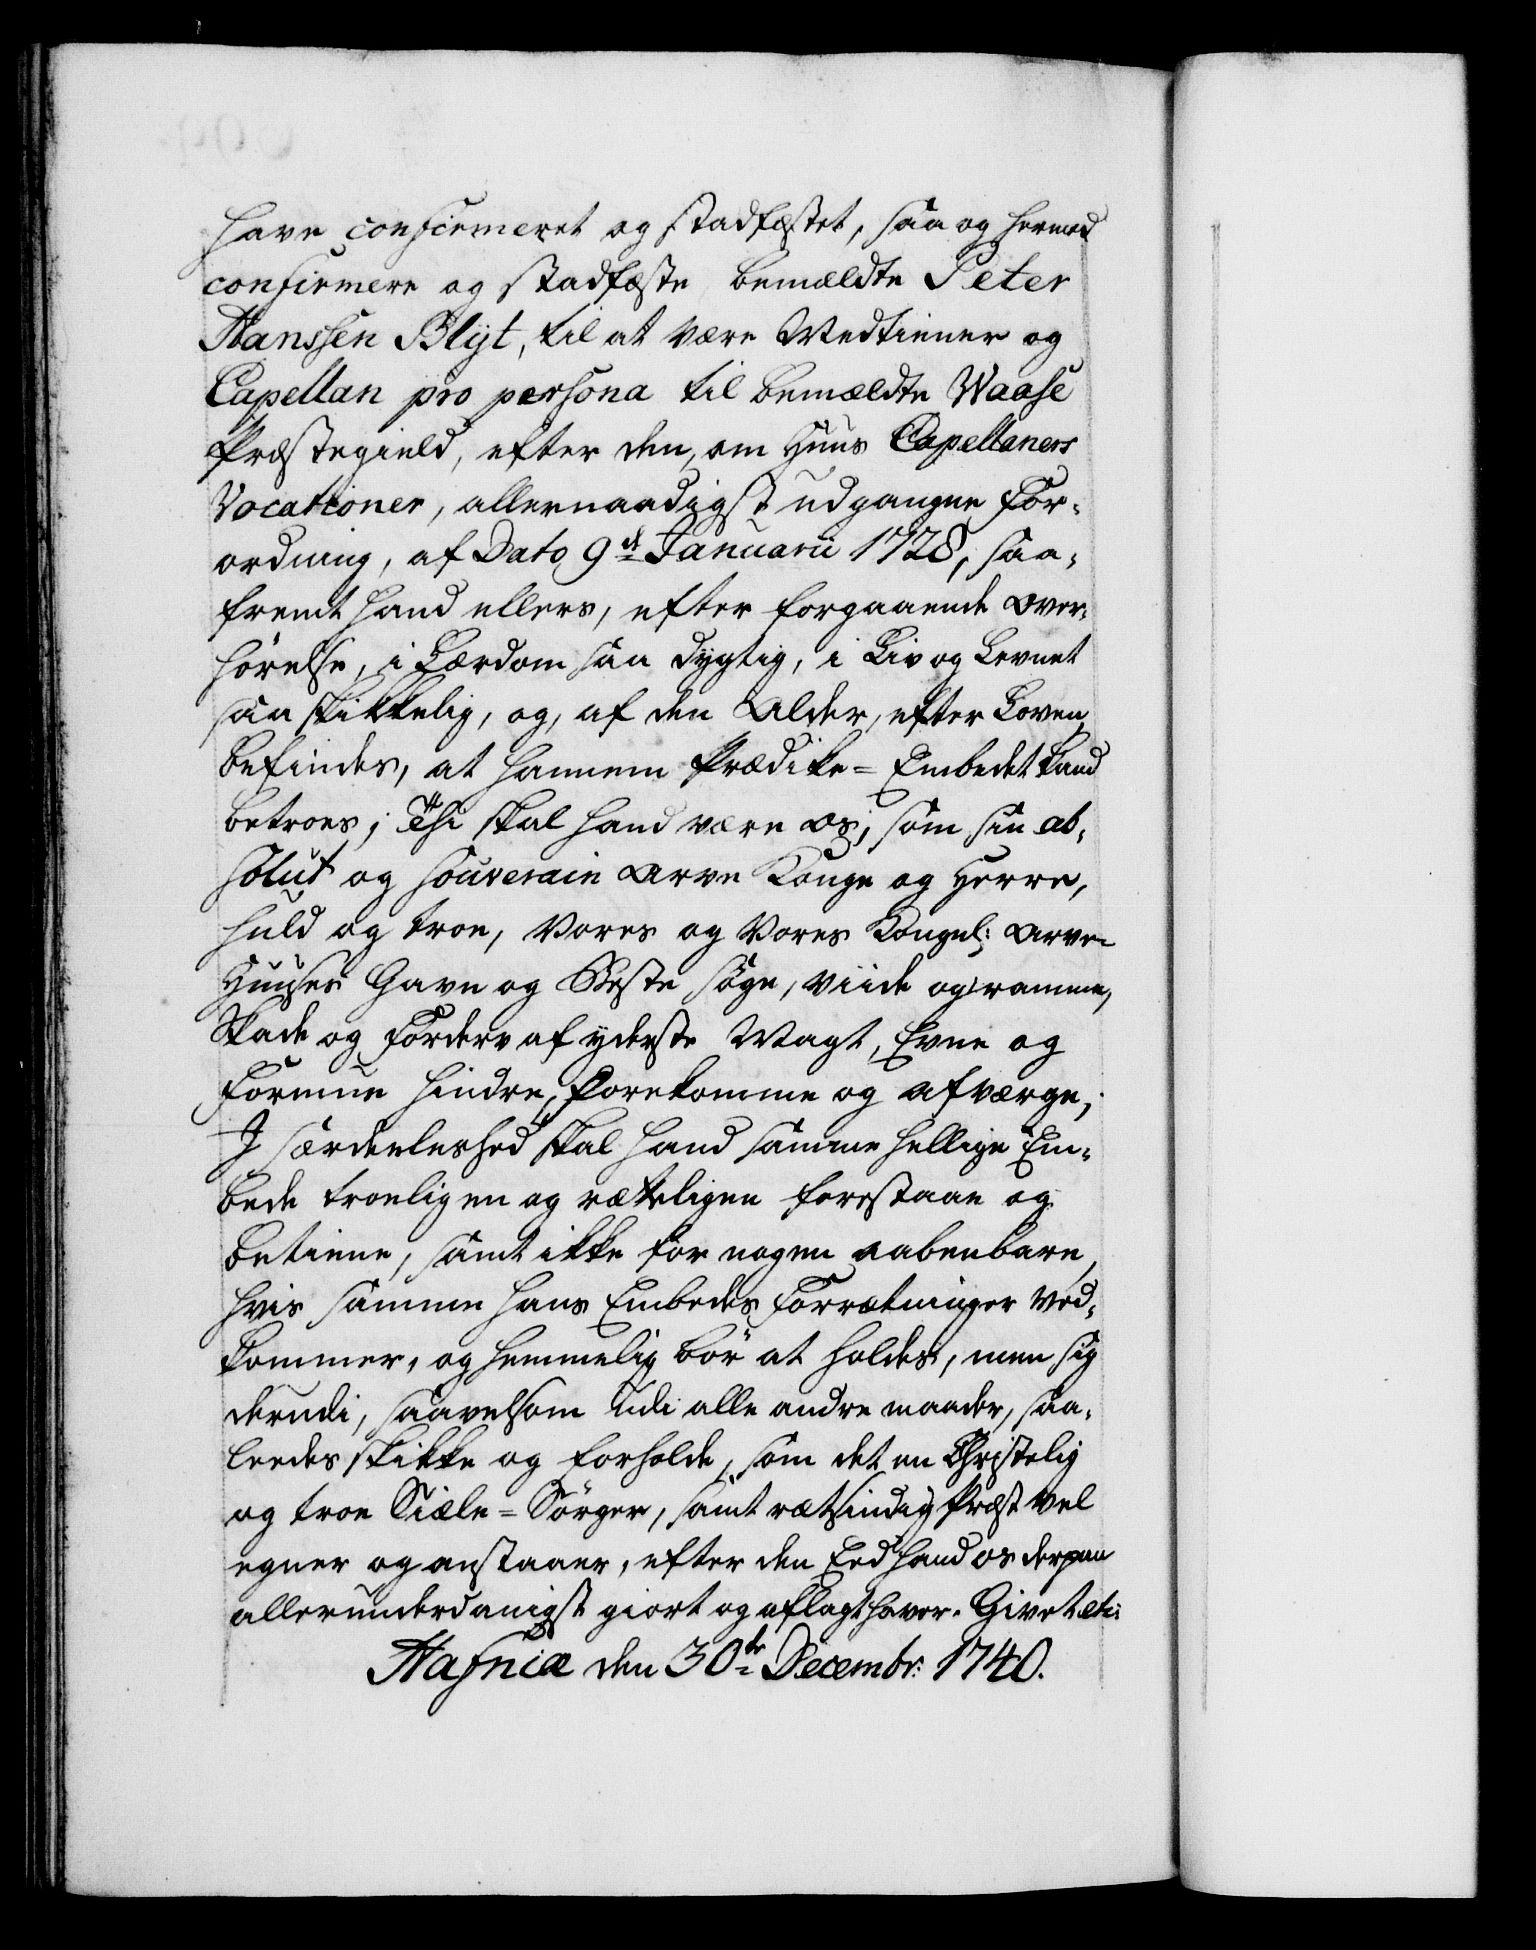 have confirmeret og stadfæstet, saa og hermed
confirmere og stadfæste bemældte Peter
Hanssen Blijt, til at være Medtiener og
Capellan pro persona til bemældte Waase
Præstegield, efter den, om Huus Capellaners
Vocationer, allernaadigst udgangne For-
ordning, af Dato 9de Januarii 1728, saa-
fremt hand ellers, efter forgaaende Over-
hörelse, i Lærdom saa dygtig, i Liv og Levnet
saa skikkelig, og, af den Alder, efter Loven,
befindes, at hannem Prædike=Embedet kand
betroes; Thi skal hand være Os, som sin ab-
solut og souverain Arve Konge og Herre,
huld og troe, Vores og Vores Kongel: Arve-
Huuses Gavn og Beste söge, viide og ramme,
Skade og Forderv af yderste Magt, Evne og
Formue hindre, forekomme og afværge,
I særdeeleshed skal hand samme hellige Em-
bede troeligen og rætteligen forestaae og
betiene, samt ikke for nogen aabenbare,
hvis samme hans Embedes Forrætninger ved-
kommer, og hemmelig bör at holdes, men sig
derudi, saavelsom udi alle andre maader, saa-
leedes skikke og forholde, som det en Christelig
og troe Siæle=Sörger, samt rætsindig Præst vel
egner og anstaaer, efter den Eed hand os derpaa
allerunderdanigst giort og aflagt haver. Givet etc:
Hafniæ den 30te Decembr: 1740.